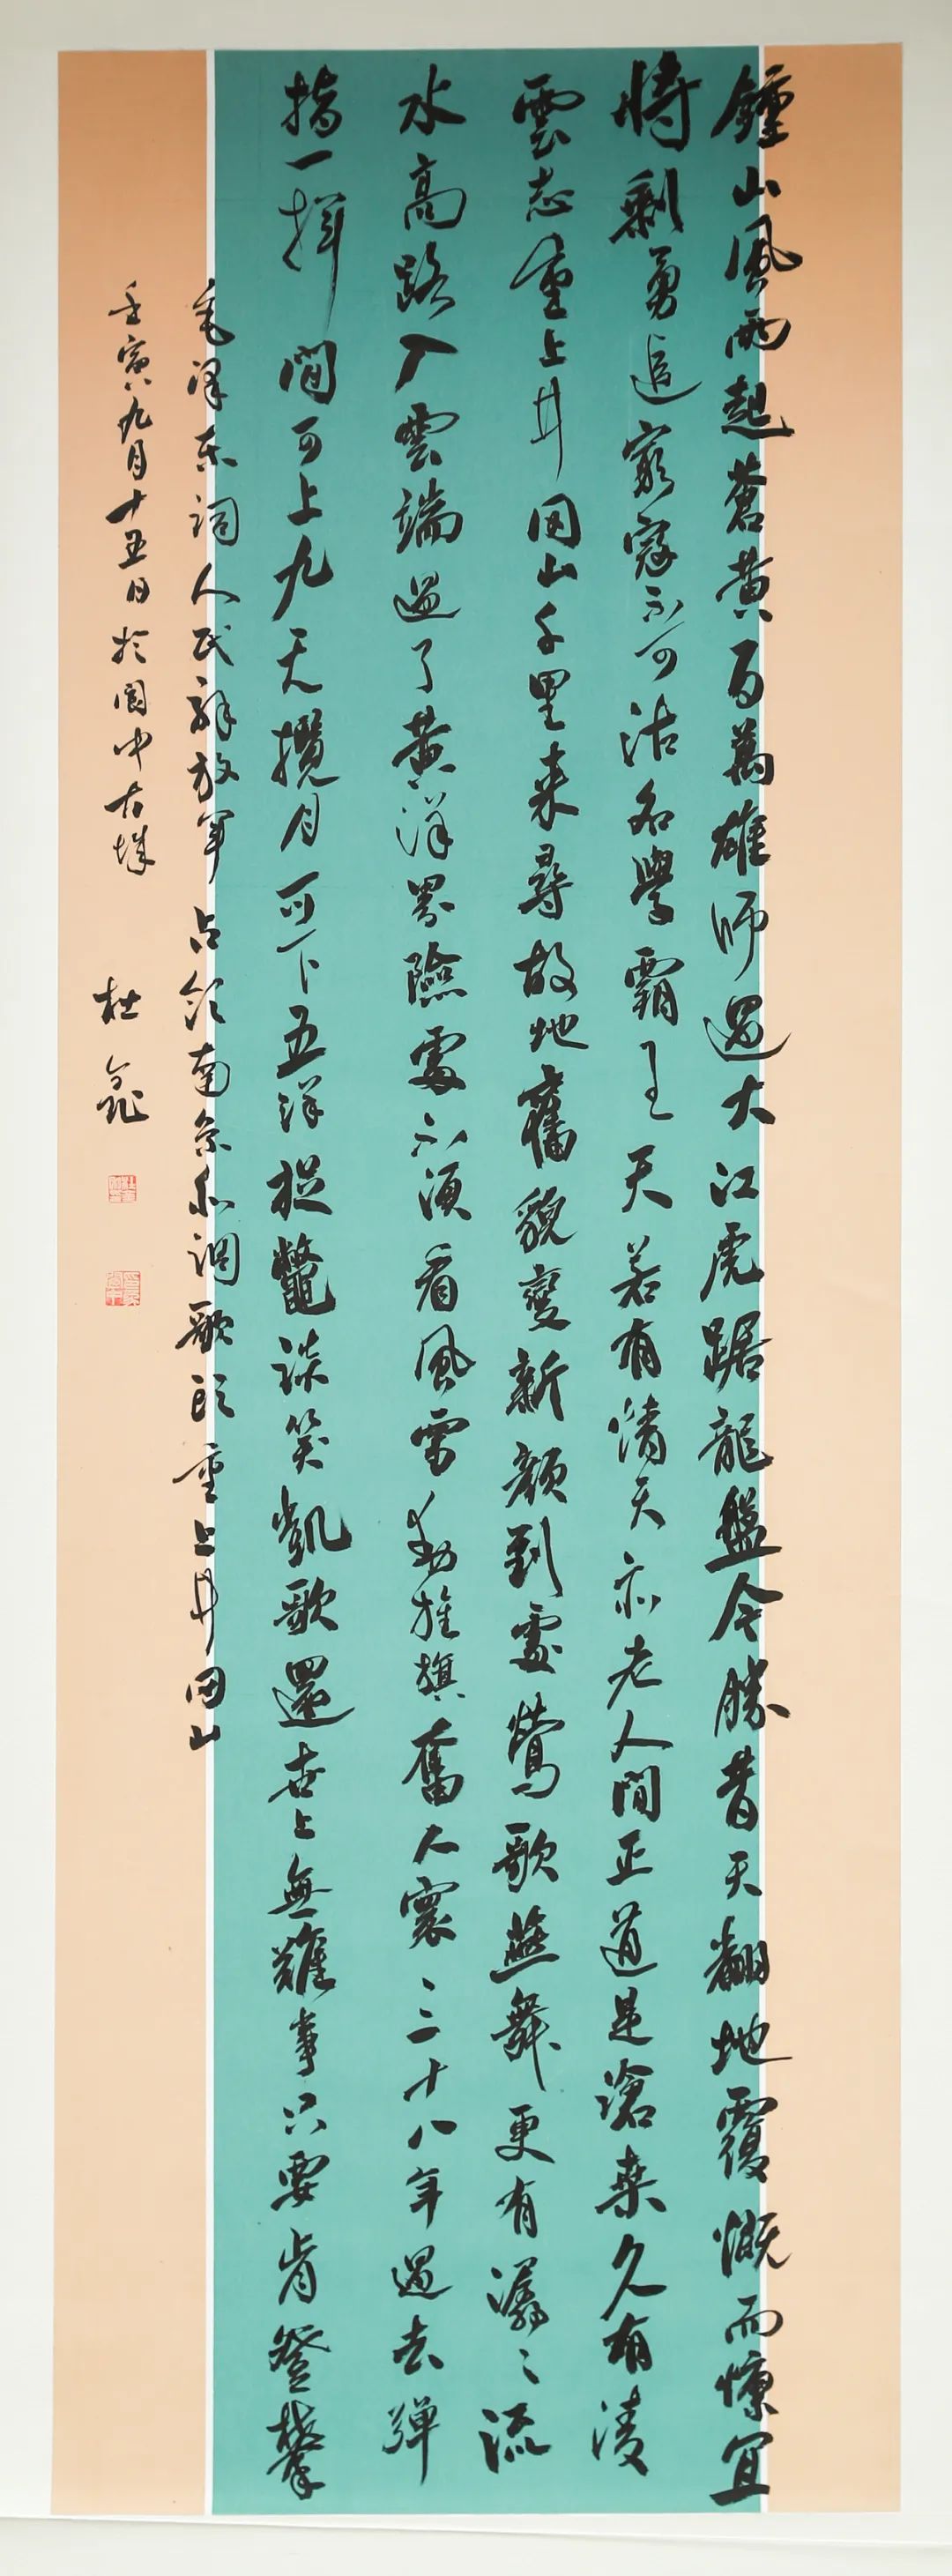 鍾山風雨起蒼黄百萬雄師過大江虎踞龍盤今勝昔天翻地覆慨而慷宜
將剩勇追窮寇不可沽名學霸王天若有情天亦老人間正道是滄桑久有凌
雲志重上井岡山千里来尋故地舊貌變新顔到處鶯歌燕舞更有潺〻流
水高路入雲端過了黄洋界險處不須看風雷動旌旗奮人寰〻三十八年過去彈
指一揮間可上九天攬月可下五洋捉鼈談笑凱歌還世上無難事只要肯登攀
毛澤東詞人民解放軍占領南京水調歌頭重上井岡山
壬寅九月十五日於閬中古城
杜鑫